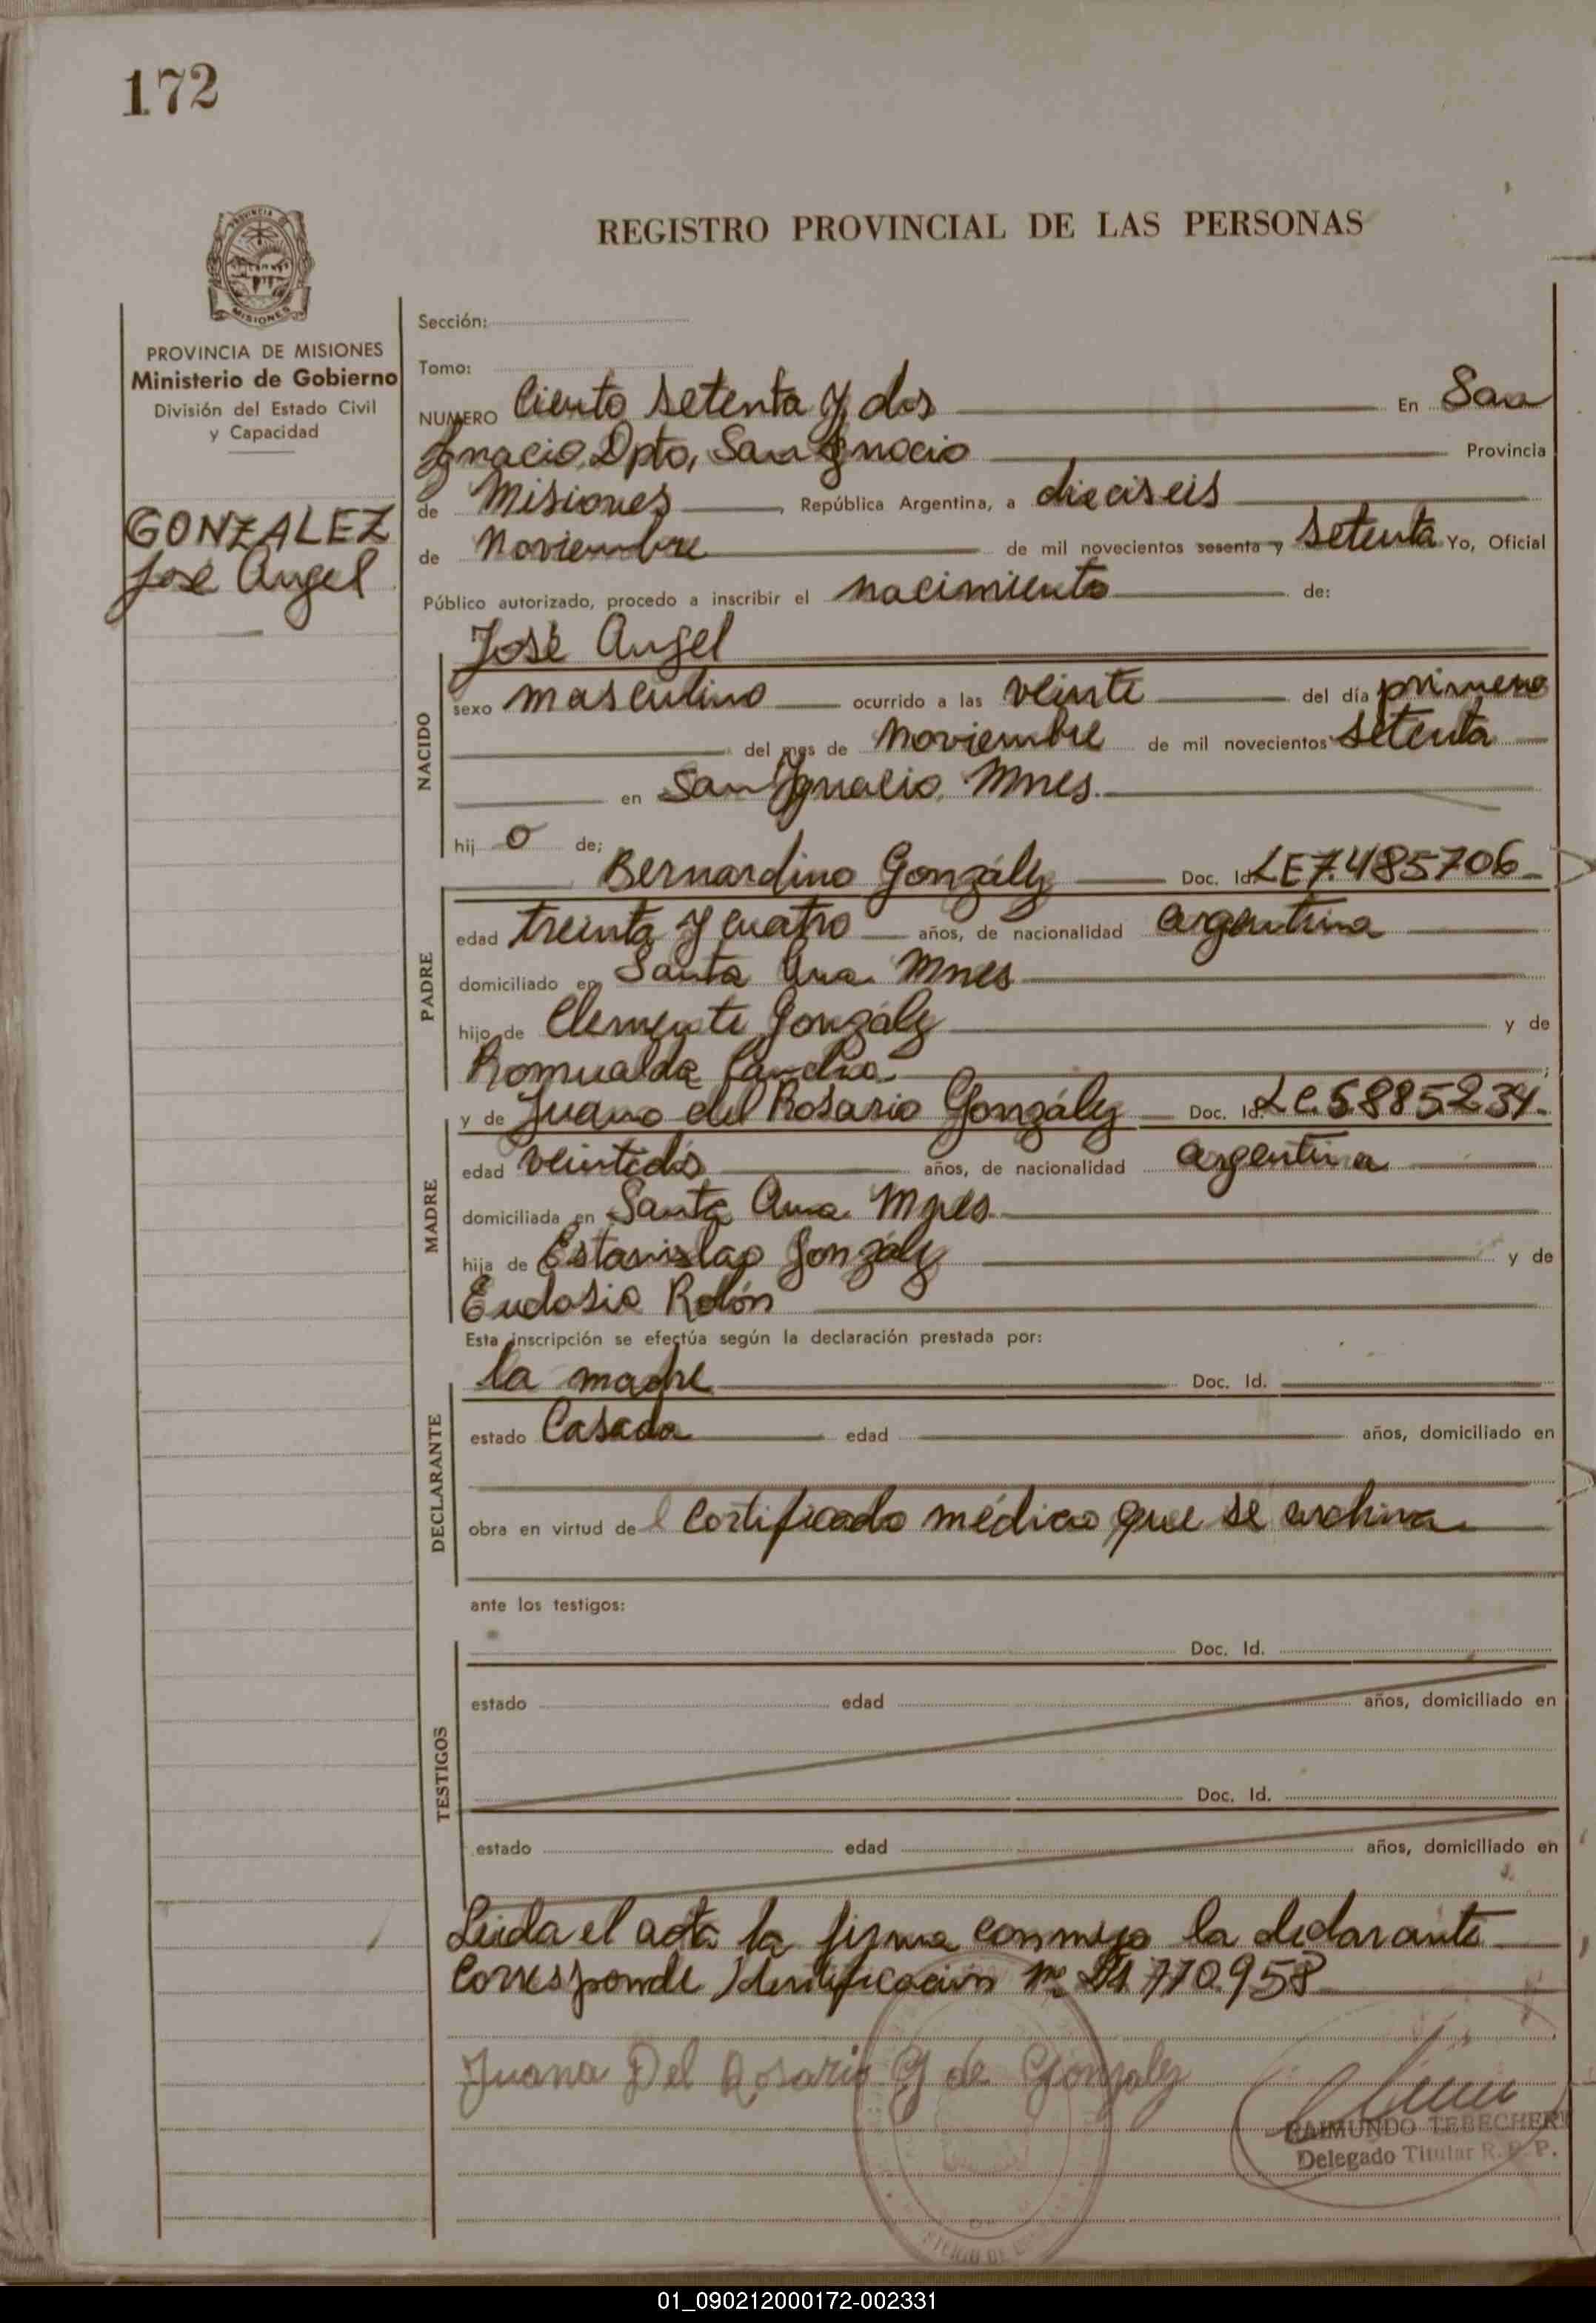 172
REGISTRO PROVINCIAL DE LAS PERSONAS
PROVINCIA DE MISIONES
Ministerio de Gobierno
División del Estado Civil
y Capacidad
GONZALEZ
José Angel
Sección:
Tomo:
NUMERO Ciento setenta y dos En San
Ignacio, Dpto, San Ignacio Provincia
de Misiones, República Argentina, a dieciseis
de Noviembre de mil novecientos sesenta y setenta Yo, Oficial
Público autorizado, procedo a inscribir el nacimiento de:
José Angel
NACIDO
sexo masculino ocurrido a las veinte del día primero
del mes de Noviembre de mil novecientos setenta
en San Ignacio, Mnes.
hij o de;
Bernardino Gonzálz Doc. Id. LE 7.485706
PADRE
edad treinta y cuatro años, de nacionalidad argentina
domiciliado en Santa Ana Mnes
hijo de Clemente Gonzálz y de
Romualda ;
y de Juana del Rosario Gonzálz Doc. Id. LC.5.885.234.
MADRE
edad veintidós años, de nacionalidad argentina
domiciliada en Santa Ana Mnes
hija de Estanislao Gonzálz y de
Eudosia Rolón
Esta inscripción se efectúa según la declaración prestada por:
la madre Doc. Id.
DECLARANTE
estado Casada edad años, domiciliado en
obra en virtud del Certificado médico que se archiva
ante los testigos:
Doc. Id.
TESTIGOS
estado edad años, domiciliado en
Doc. Id.
estado edad años, domiciliado en
Leida el acta la firma conmigo la declarante
Corresponde Identificación Nº 21.770.958
Juana Del Rosario G de Gonzalz
RAIMUNDO TEBECHERI
Delegado Titular R. P. P.
01_090212000172-002331